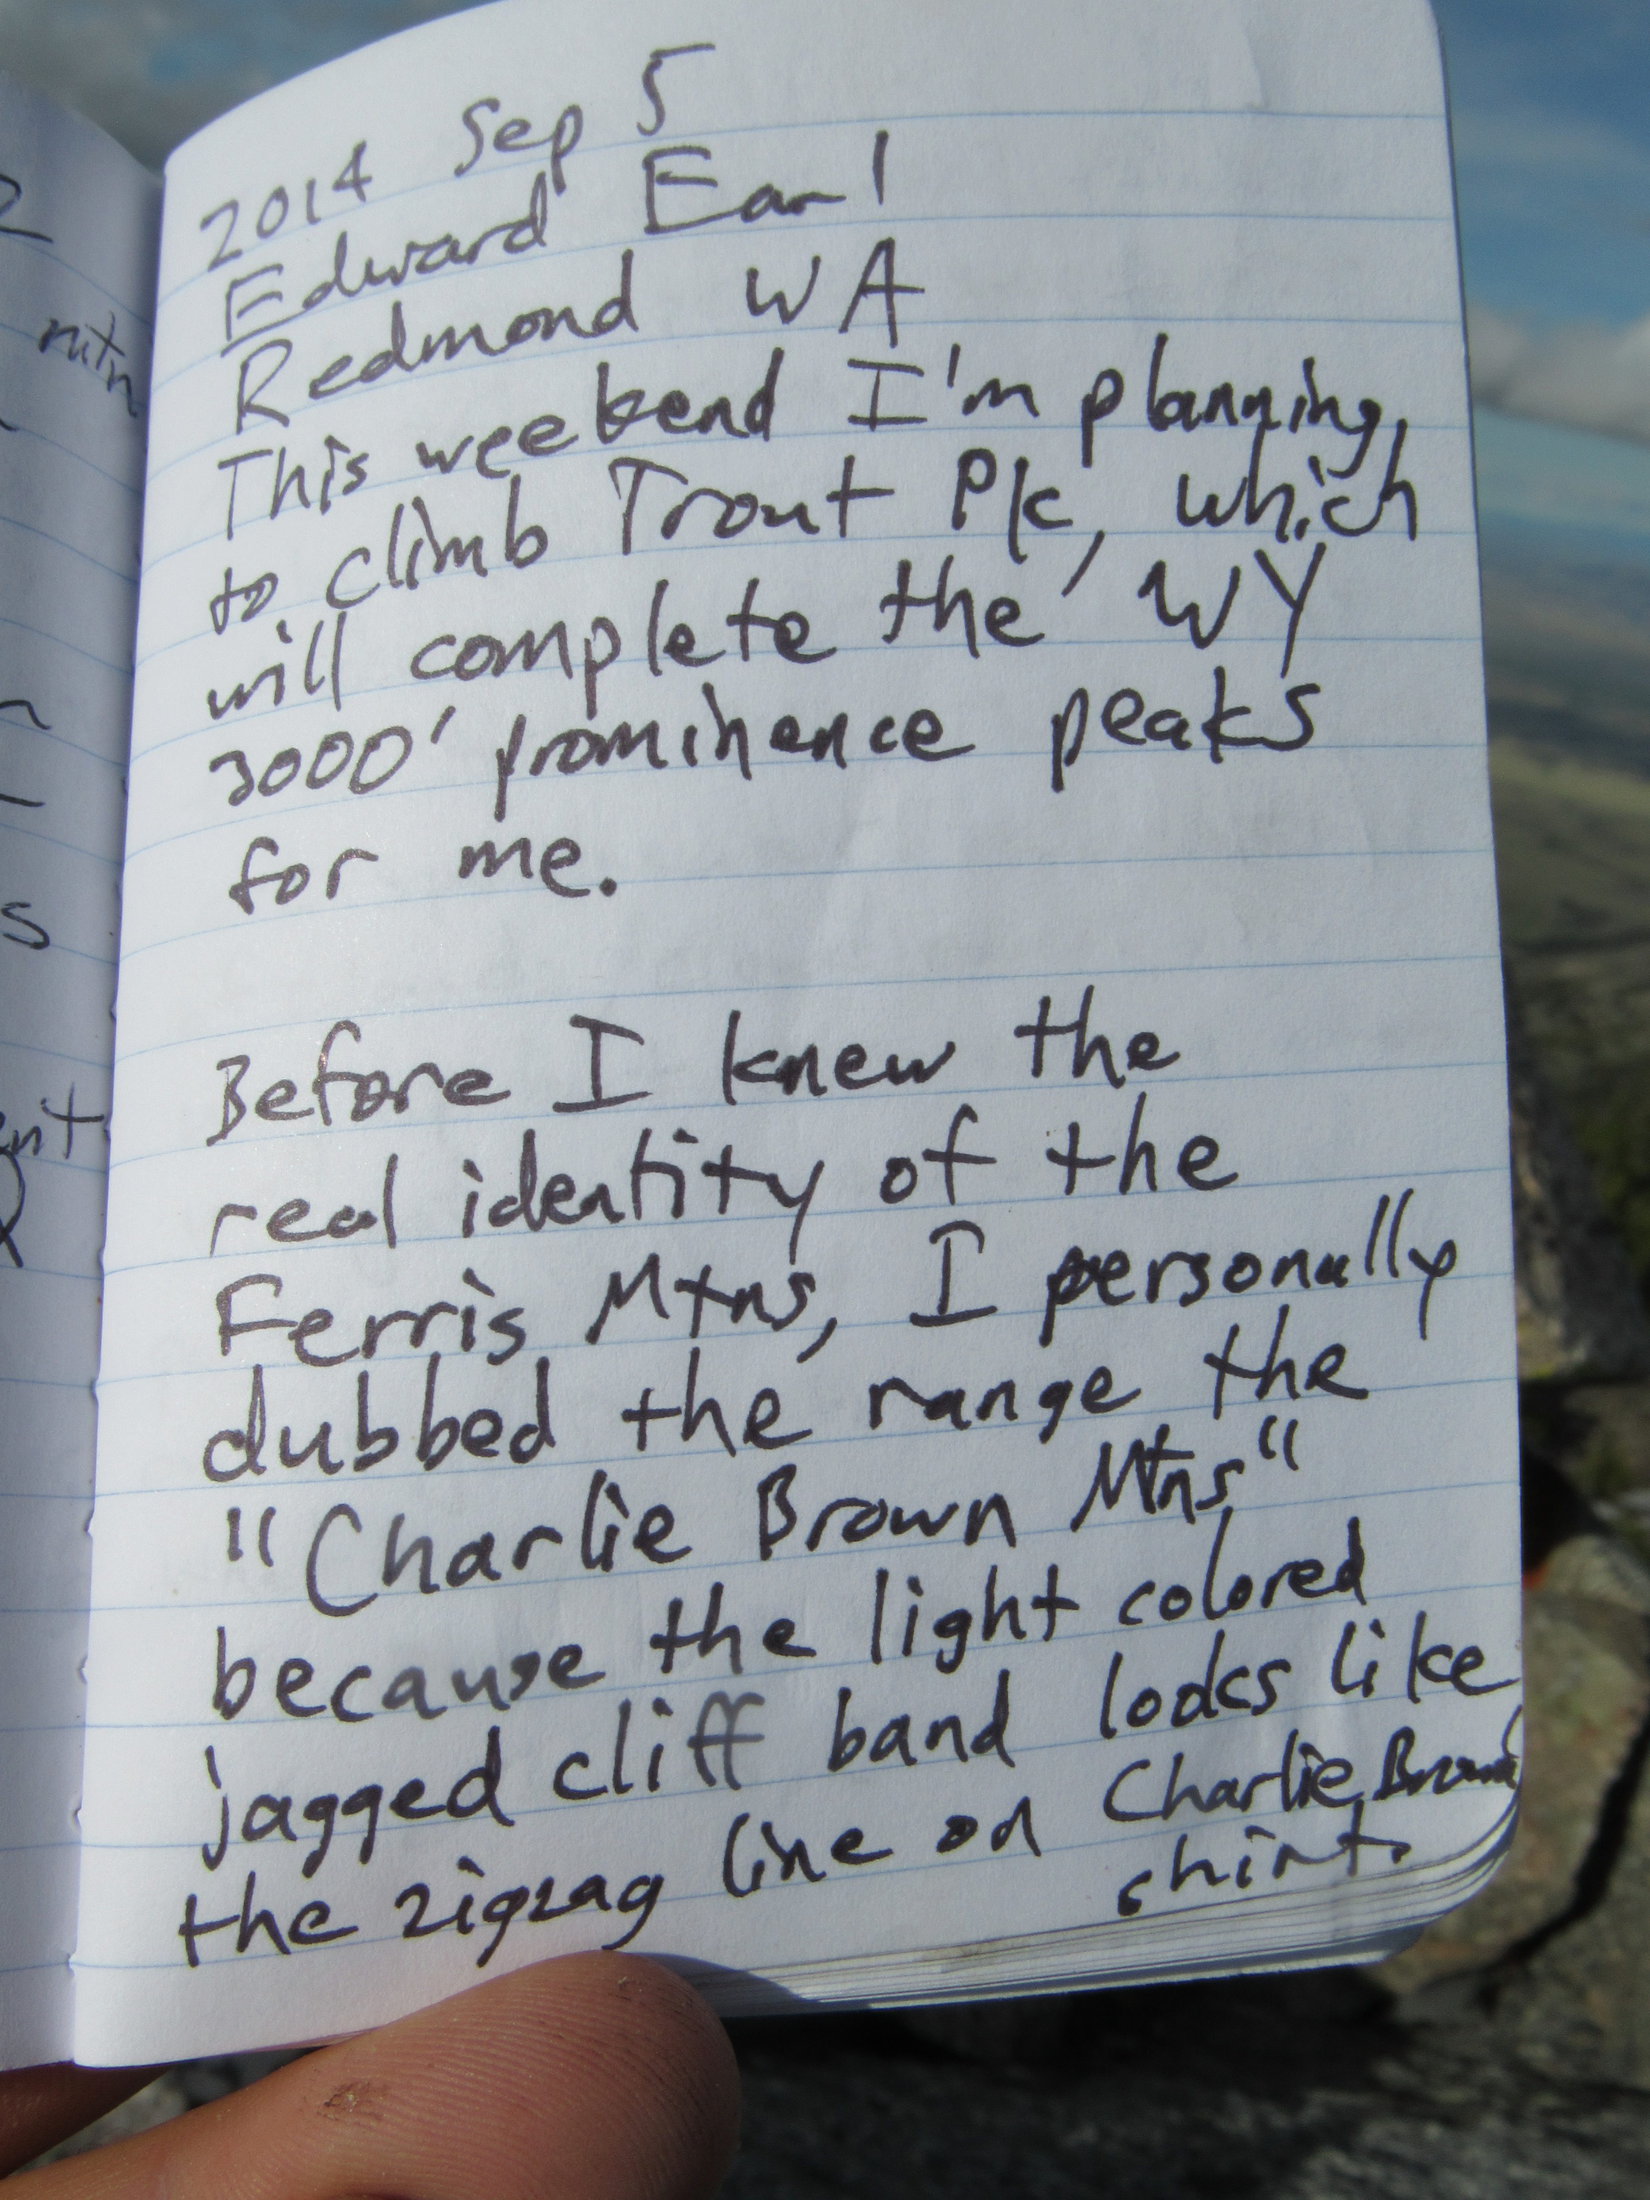 2014 Sep 5
Edward Earl
Redmond WA
This weekend I'm planning
to climb Trout Pk, which
will complete the WY
3000' prominence peaks
for me.
Before I knew the
real identity of the
Ferris Mtns, I personally
dubbed the range the
"Charlie Brown Mtns"
because the light colored
jagged cliff band looks like
the zigzag line on Charlie Brown
shirt.